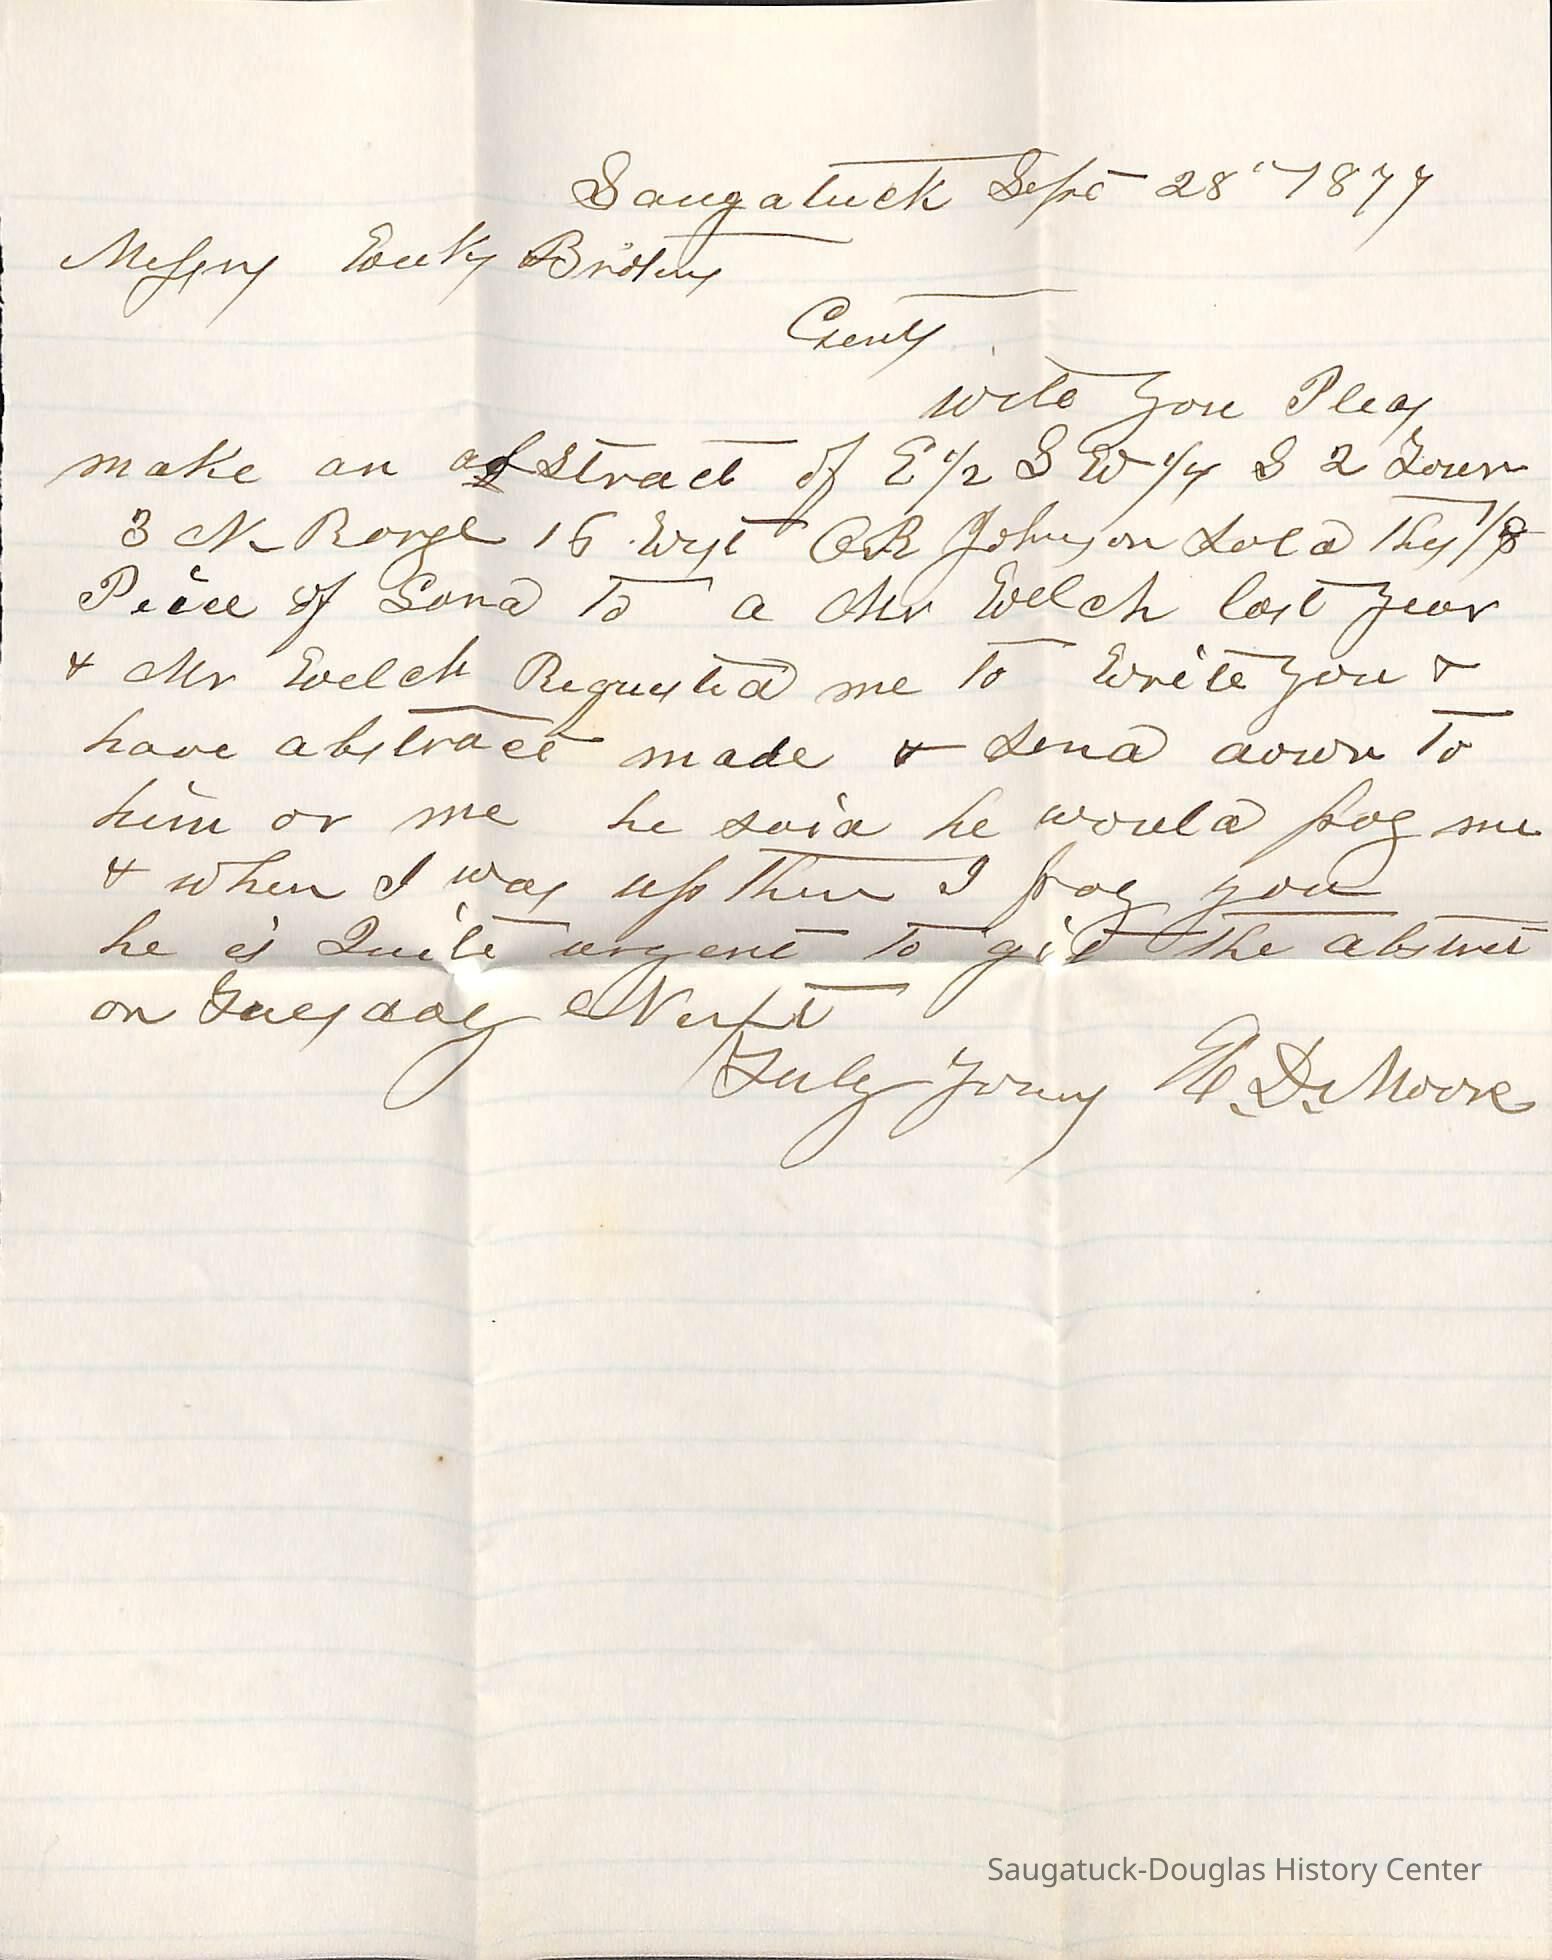 Saugatuck Sept 28th 1877
Messrs Weeks Brothers
Gents
will you Pleas
make an abstract of E 1/2 S W 1/4 S 2 Town
3 N Range 16 West OR Johnson sold this 1/8
Peice of Land To a Mr Welch last year
& Mr Welch Requested me To Write you &
have abstract made & send down To
him or me he said he would pay me
& when I was up There I pay you
he is Quite urgent To git The abstrct
on Tuesday Next
Truly Yours H. D. Moore
Saugatuck-Douglas History Center